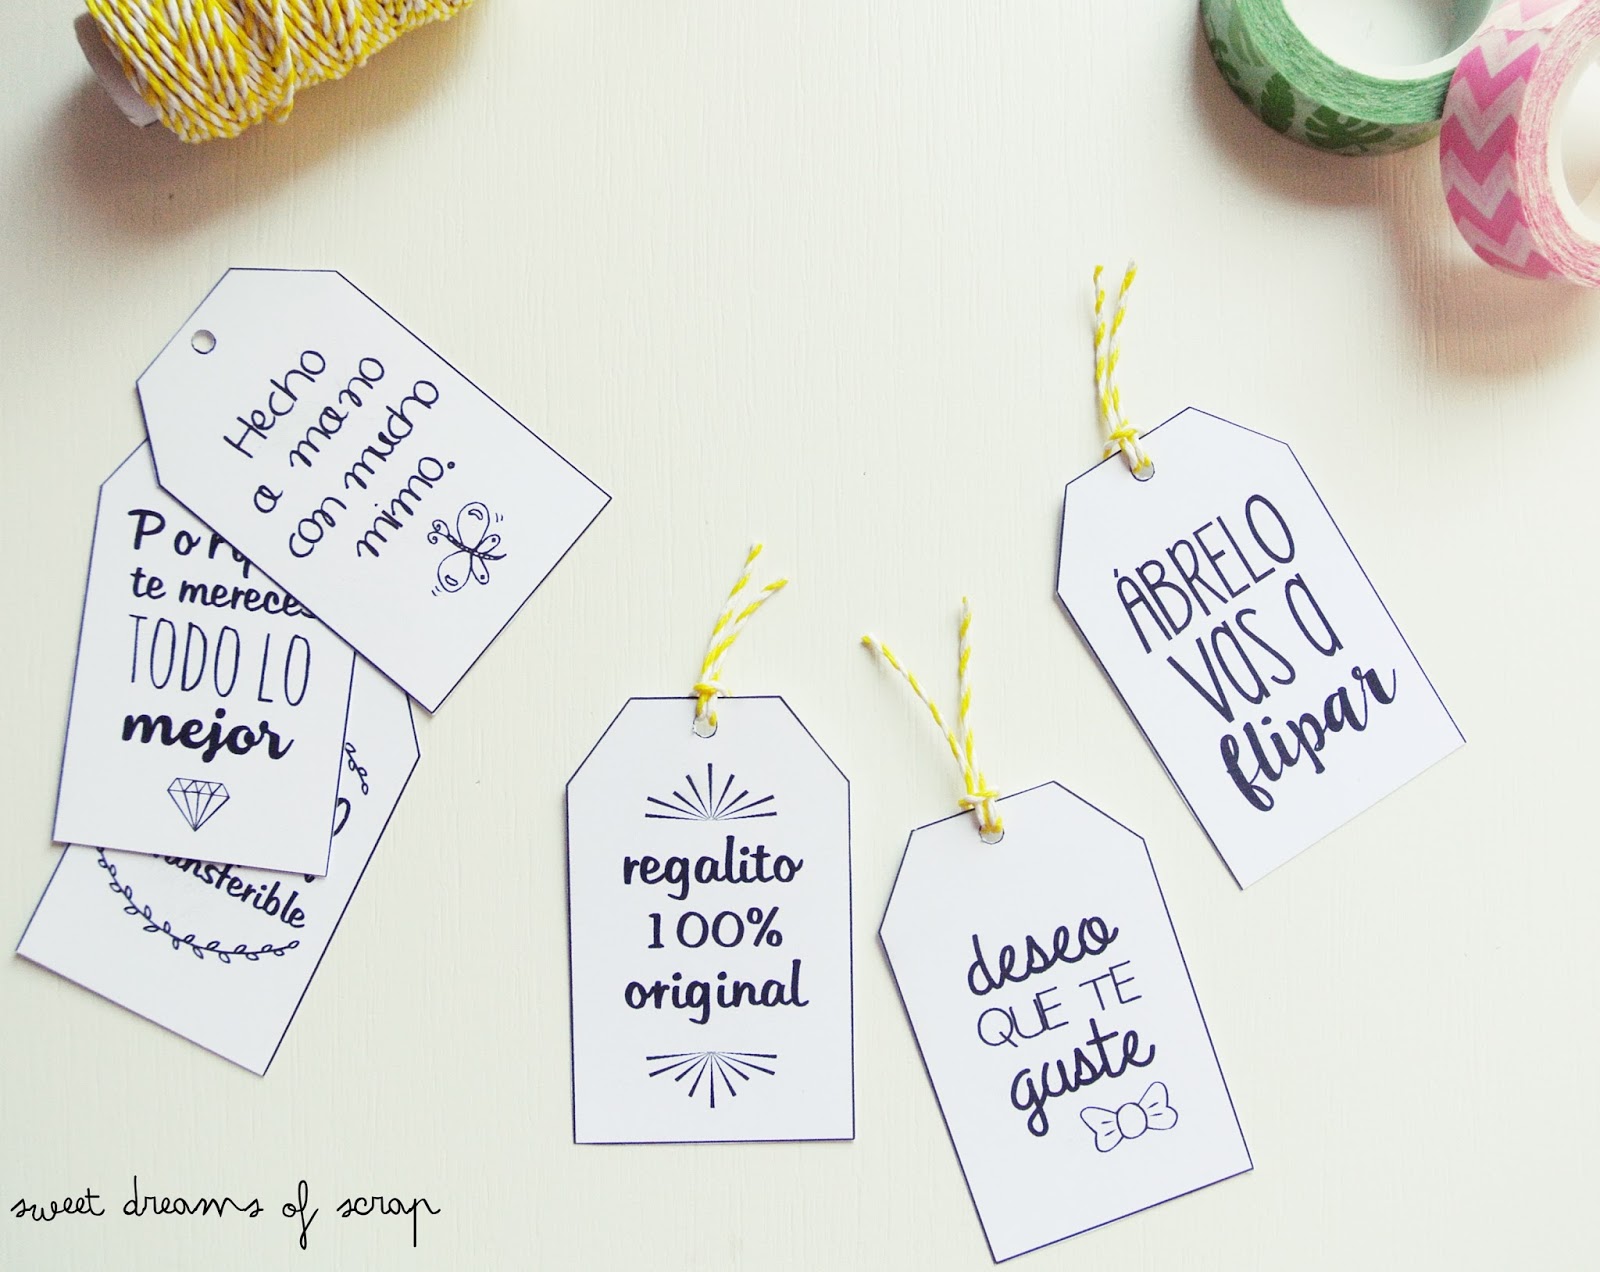 Hecho
a mano
con mucho
mimo.
te mereces
TODO LO
mejor
regalito
100%
original
deseo
QUE TE
guste
ÁBRELO
VAS A
flipar
sweet dreams of scrap